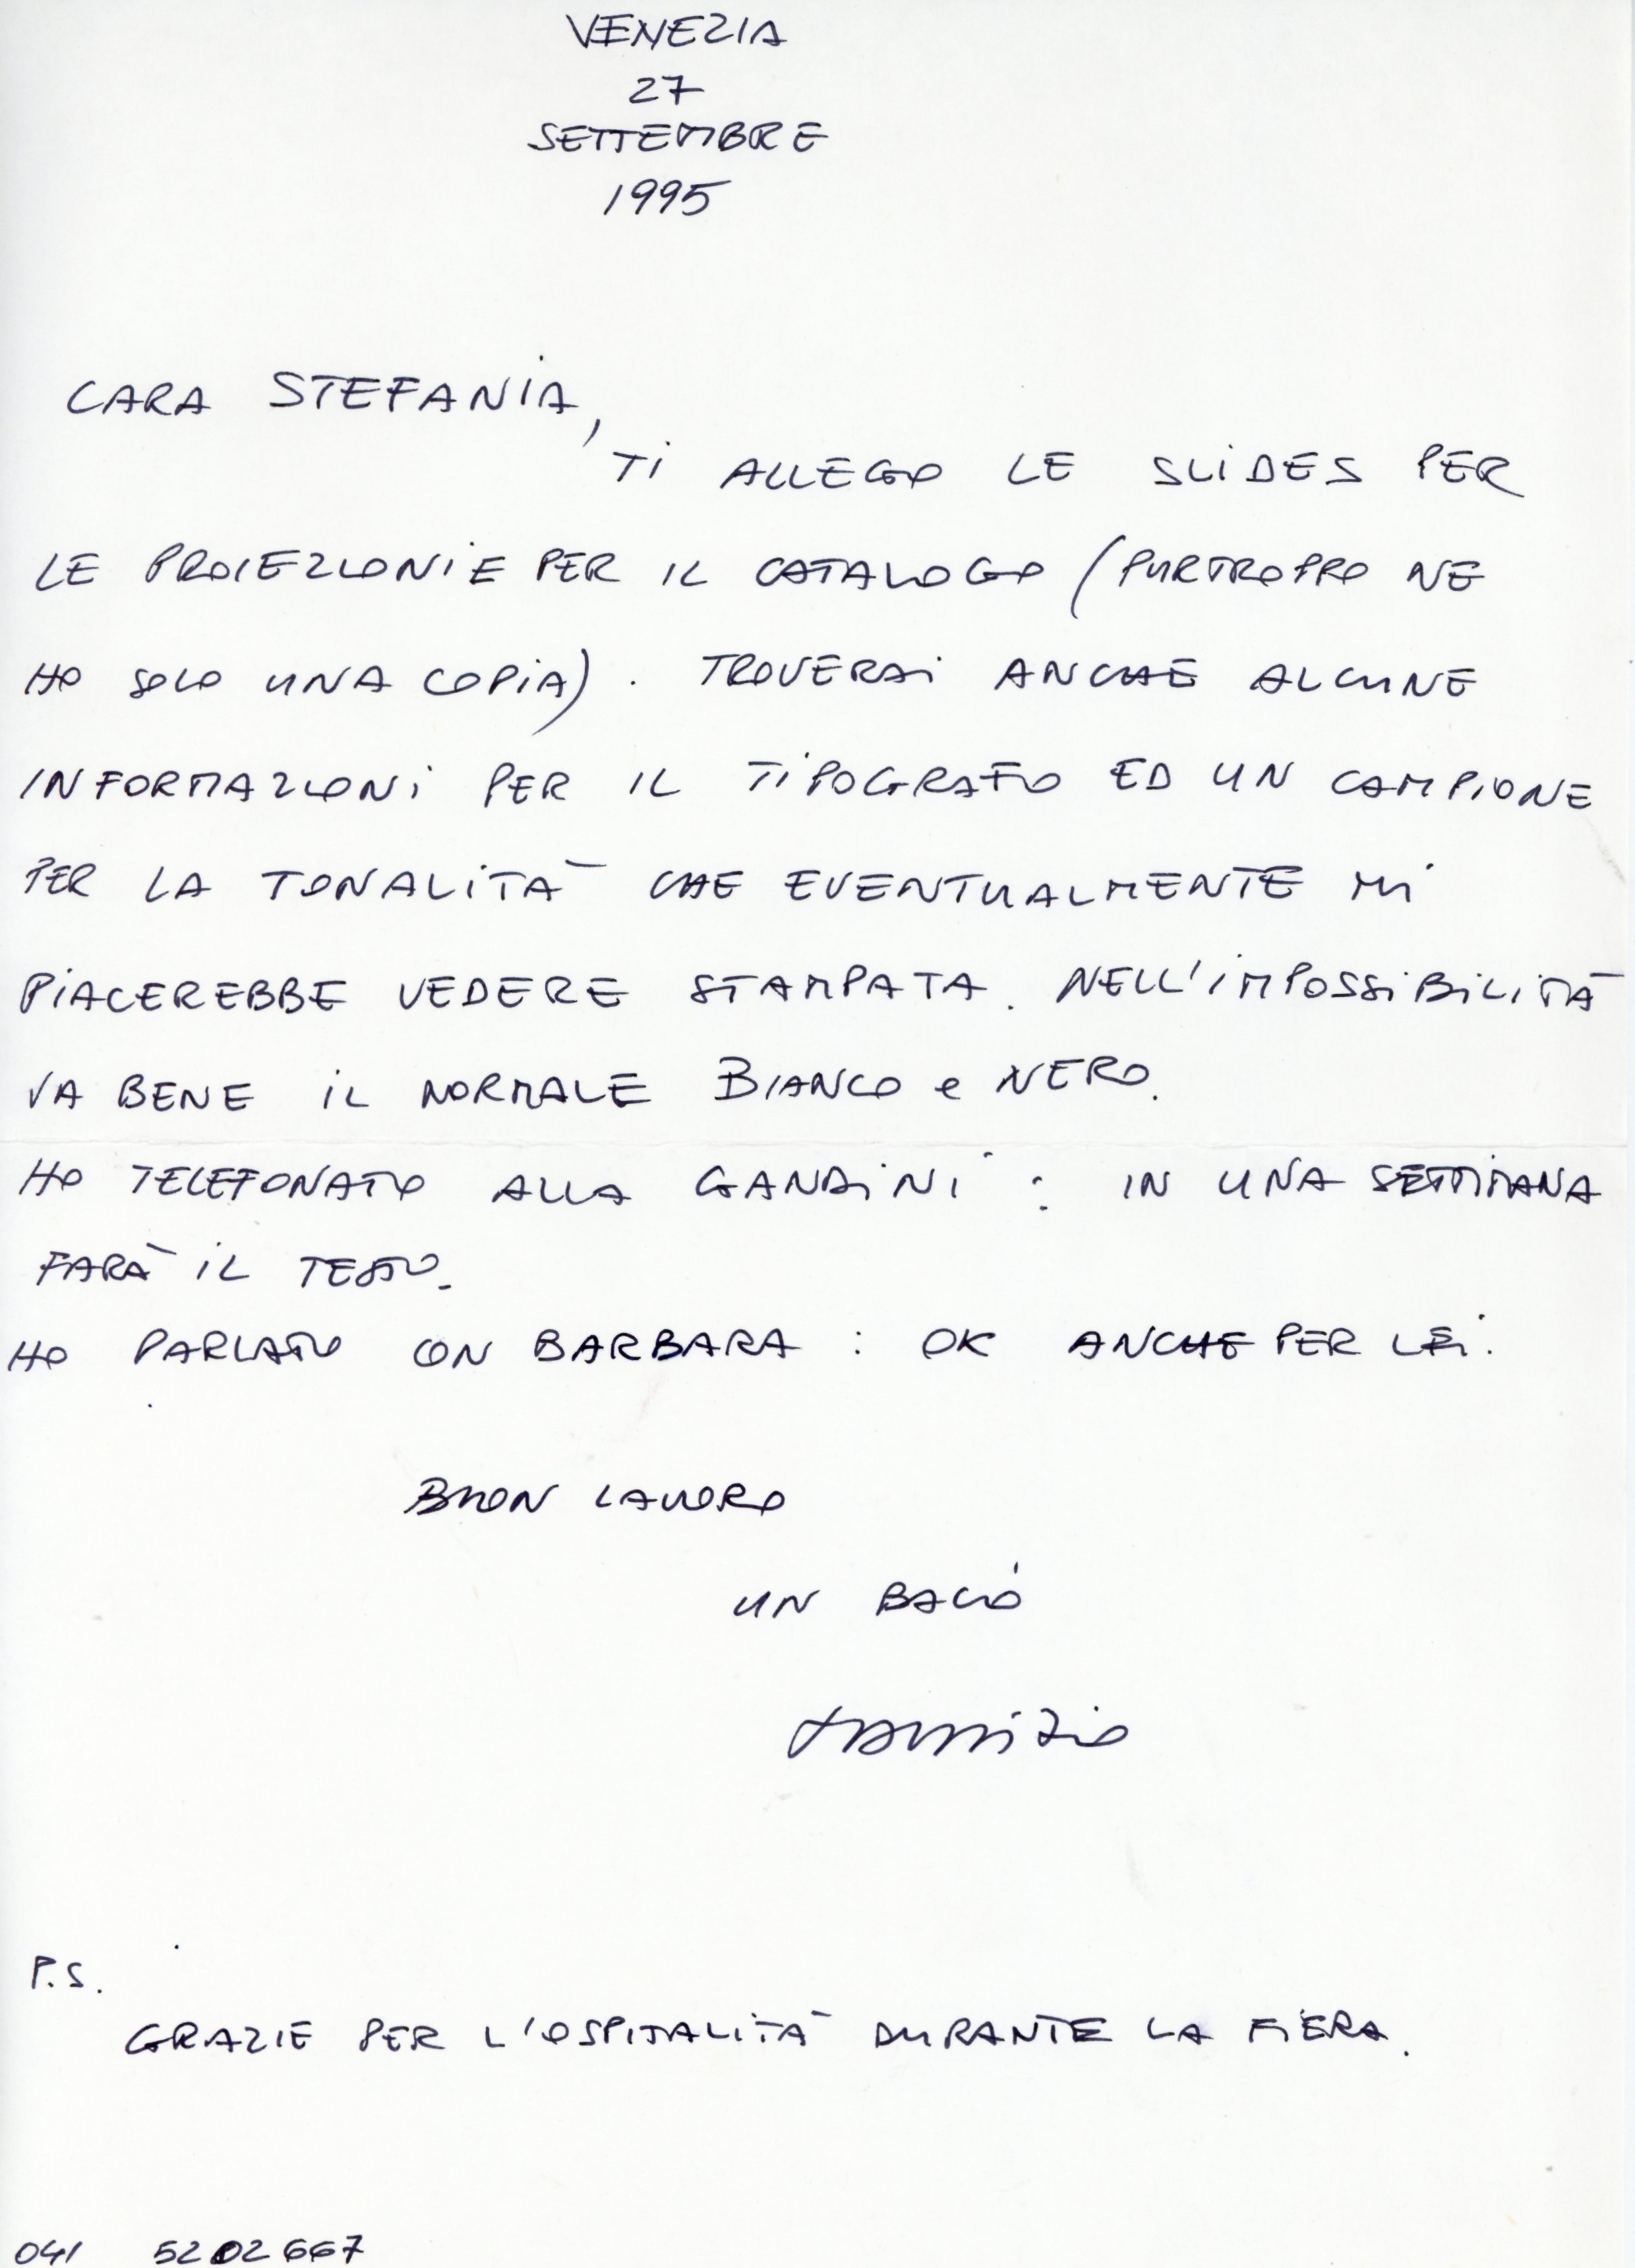 VENEZIA
27
SETTEMBRE
1995
CARA STEFANIA,
TI ALLEGO LE SLIDES PER
LE PROIEZIONI E PER IL CATALOGO (PURTROPPO NE
HO SOLO UNA COPIA). TROVERAI ANCHE ALCUNE
INFORMAZIONI PER IL TIPOGRAFO ED UN CAMPIONE
PER LA TONALITÀ CHE EVENTUALMENTE MI
PIACEREBBE VEDERE STAMPATA. NELL'IMPOSSIBILITÀ
VA BENE IL NORMALE BIANCO e NERO.
HO TELEFONATO ALLA GANDINI : IN UNA SETTIMANA
FARÀ IL TESTO.
HO PARLATO CON BARBARA : OK ANCHE PER LEI.
BUON LAVORO
UN BACIO
P.S.
GRAZIE PER L'OSPITALITÀ DURANTE LA FIERA.
041 5202667